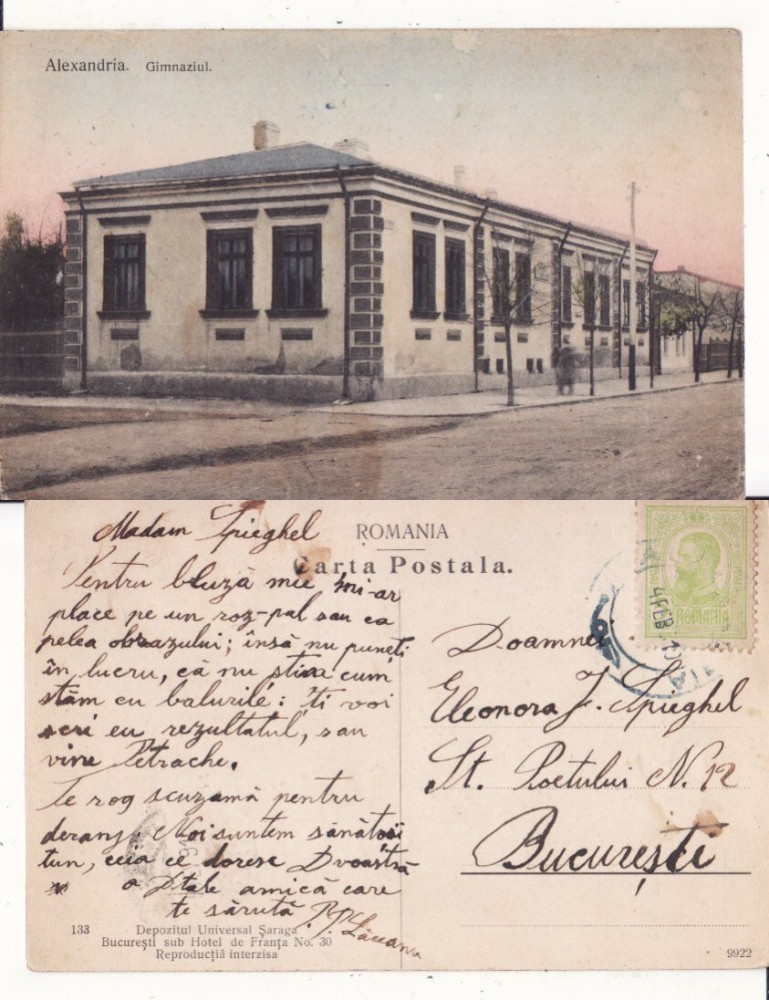 Alexandria. Gimnaziul.
Madam Spieghel
ROMANIA
Carta Postala.
Pentru bluză mie mi-ar
place pe un roz-pal sau ca
pelea obrazului; însă nu puneți
în lucru, că nu știa cum
stăm cu balurile: ți voi
scri eu rezultatul, sau
vine Petrache.
Te rog scuzamă pentru
deranj. Noi suntem sănătoși
tun, ceia ce doresc Dvoastră
o Dtale amică care
te sărută
Lăceanu
Doamnei
Eleonora J. Spieghel
St. Poetului N. 12
București
ROMANIA
4 FEB
133 Depozitul Universal Șaraga
București sub Hotel de Franța No. 30
Reproducția interzisa
9922